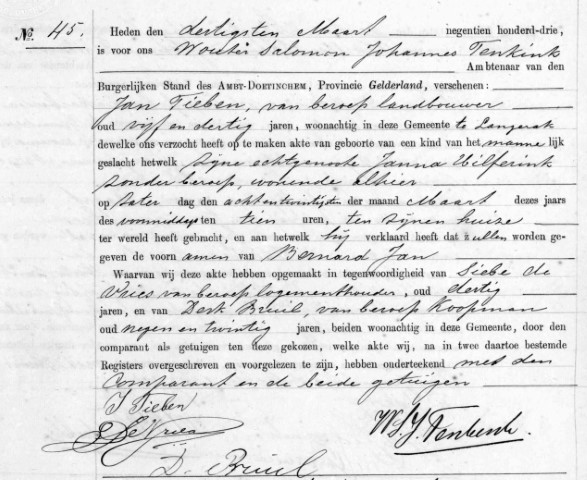 No. 45. Heden den dertigsten Maart negentien honderd-drie,
is voor ons Wouter Salomon Johannes Tenkink
Ambtenaar van den
Burgerlijken Stand des Ambt-Doetinchem, Provincie Gelderland, verschenen:
Jan Tieben, van beroep landbouwer
oud vijf en dertig jaren, woonachtig in deze Gemeente te Langerak
dewelke ons verzocht heeft op te maken akte van geboorte van een kind van het mannelijk
geslacht hetwelk zijne echtgenoote Janna Wilferink
zonder beroep, wonende alhier
op zater dag den achtentwintigsten der maand Maart dezes jaars
des voormiddags ten tien uren, ten zijnen huize
ter wereld heeft gebracht, en aan hetwelk hij verklaard heeft dat zullen worden ge-
geven de voornamen van Bernard Jan
Waarvan wij deze akte hebben opgemaakt in tegenwoordigheid van Siebe de
Vries van beroep logementhouder, oud dertig
jaren, en van Derk Bruil, van beroep Koopman
oud negen en twintig jaren, beiden woonachtig in deze Gemeente, door den
comparant als getuigen ten deze gekozen, welke akte wij, na in twee daartoe bestemde
Registers overgeschreven en voorgelezen te zijn, hebben onderteekend met den
Comparant en de beide getuigen
J Tieben
S de Vries
W.S.J. Tenkink
D. Bruil